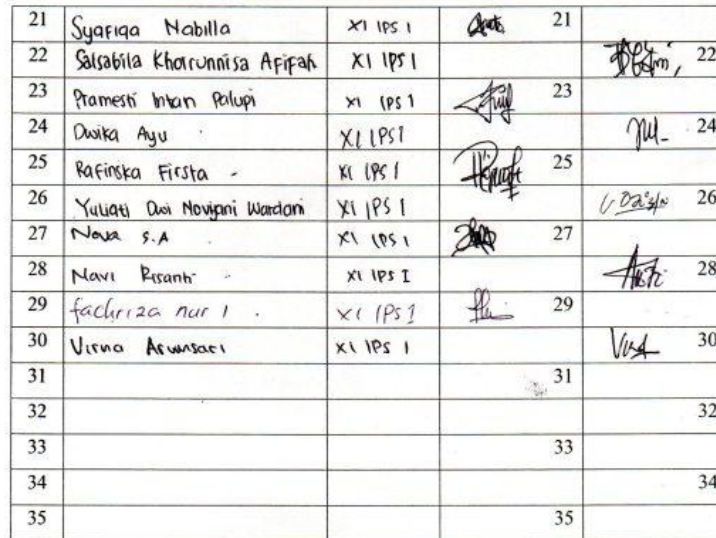 21 Syafiqa Nabilla XI IPS 1 21
22 Salsabila Khoirunnisa Afifah XI IPS 1 22
23 Pramesti Intan Palupi XI IPS 1 23
24 Dwika Ayu XI IPS 1 24
25 Rafinska Firsta XI IPS 1 25
26 Yuliati Dwi Noviani Wardani XI IPS 1 26
27 Nova S.A XI IPS 1 27
28 Navi Risanti XI IPS I 28
29 fachriza nur I XI IPS I 29
30 Virna Arumsari XI IPS 1 30
31 31
32 32
33 33
34 34
35 35